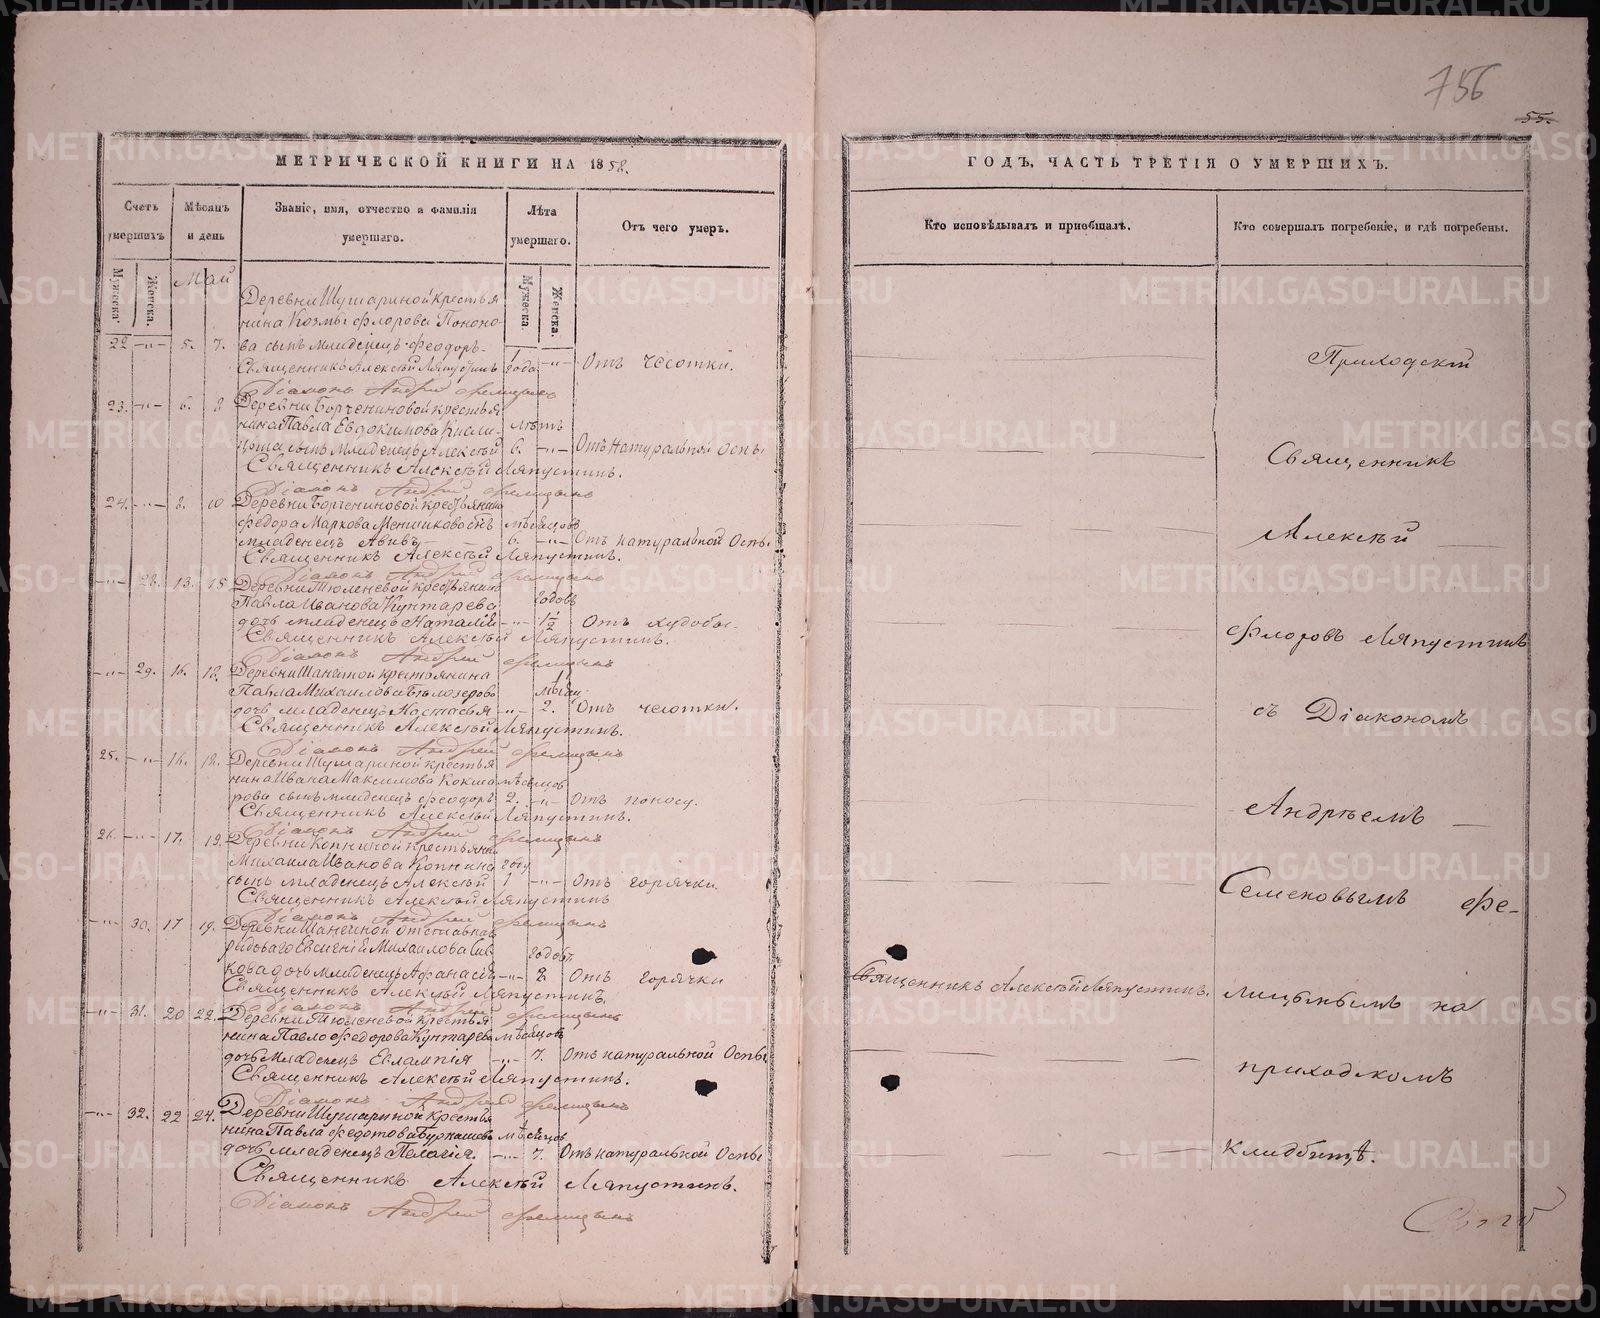 756
55.
МЕТРИЧЕСКОЙ КНИГИ НА 1858.
Счетъ умершихъ
Мѣсяцъ и день
Званіе, имя, отчество и фамилія умершаго.
Лѣта умершаго.
Отъ чего умеръ.
Мужеска.
Женска.
Мужеска.
Женска.
Май
Деревни Шушариной крестья
нина Козмы Флорова Пононо-
22 -"- 5. 7. ва сынъ младенецъ Феодоръ-
Священникъ Алексѣй Ляпустинъ 1 года -"- Отъ чесотки.
Діаконъ Андрей Фелицынъ
23. -"- 6. 8 Деревни Борчениновой крестья
нина Павла Евдокимова лѣтъ
сынъ младенецъ Алексѣй 6. -"- Отъ Натуральной Оспы.
Священникъ Алексѣй Ляпустинъ.
Діаконъ Андрей Фелицынъ
24. -"- 8. 10 Деревни Борчениновой крестьянина
Федора Маркова Меншикова сынъ мѣсяцовъ
младенецъ Авивъ 6. -"- Отъ натуральной Оспы.
Священникъ Алексѣй Ляпустинъ.
Діаконъ Андрей Фелицынъ
-"- 28. 13. 15 Деревни Тюленевой крестьянина
Павла Иванова Кунтарева годовъ
дочь младенецъ Наталія -"- 1½ Отъ худобы.
Священникъ Алексѣй Ляпустинъ.
Діаконъ Андрей Фелицынъ
-"- 29. 16. 18. Деревни крестьянина
Павла Михаилова Бѣлозерова мѣсяц.
дочь младенецъ Настасья -"- 2. Отъ чесотки.
Священникъ Алексѣй Ляпустинъ.
Діаконъ Андрей Фелицынъ
25. -"- 16. 18. Деревни Шушариной крестья
нина Ивана Максимова Кокша мѣсяцов
рова сынъ младенецъ Феодоръ 2. -"- Отъ поносу.
Священникъ Алексѣй Ляпустинъ.
Діаконъ Андрей Фелицынъ
26. -"- 17. 19. Деревни Копниной крестьяни
Михаила Иванова Копнина году
сынъ младенецъ Алексѣй 1 -"- Отъ горячки
Священникъ Алексѣй Ляпустинъ
Діаконъ Андрей Фелицынъ
-"- 30. 17 19. Деревни отставнаго
рядоваго Михаилова Сив годовъ.
кова дочь младенецъ Афанасія -"- 2 Отъ горячки
Священникъ Алексѣй Ляпустинъ.
Діаконъ Андрей Фелицынъ
-"- 31. 20 22. Деревни Тюленевой крестья
нина Павла Федорова Кунтарева мѣсяцовъ
дочь младенецъ Евлампія -"- 7. Отъ натуральной Оспы
Священникъ Алексѣй Ляпустинъ.
Діаконъ Андрей Фелицынъ
-"- 32. 22 24. Деревни Шушариной крестья
нина Павла Федотова Бурнашева мѣсяцов
дочь младенецъ Пелагія. -"- 7. Отъ натуральной Оспы
Священникъ Алексѣй Ляпустинъ.
Діаконъ Андрей Фелицынъ
ГОДЪ, ЧАСТЬ ТРЕТІЯ О УМЕРШИХЪ.
Кто исповѣдывалъ и пріобщалъ.
Кто совершалъ погребеніе, и гдѣ погребены.
Приходскій
Священникъ
Алексѣй
Флоровъ Ляпустинъ
съ Діакономъ
Андреемъ
Семеновымъ Фе-
Священникъ Алексѣй Ляпустинъ.
лицынымъ на
приходскомъ
Кладбищѣ.
METRIKI.GASO-URAL.RU